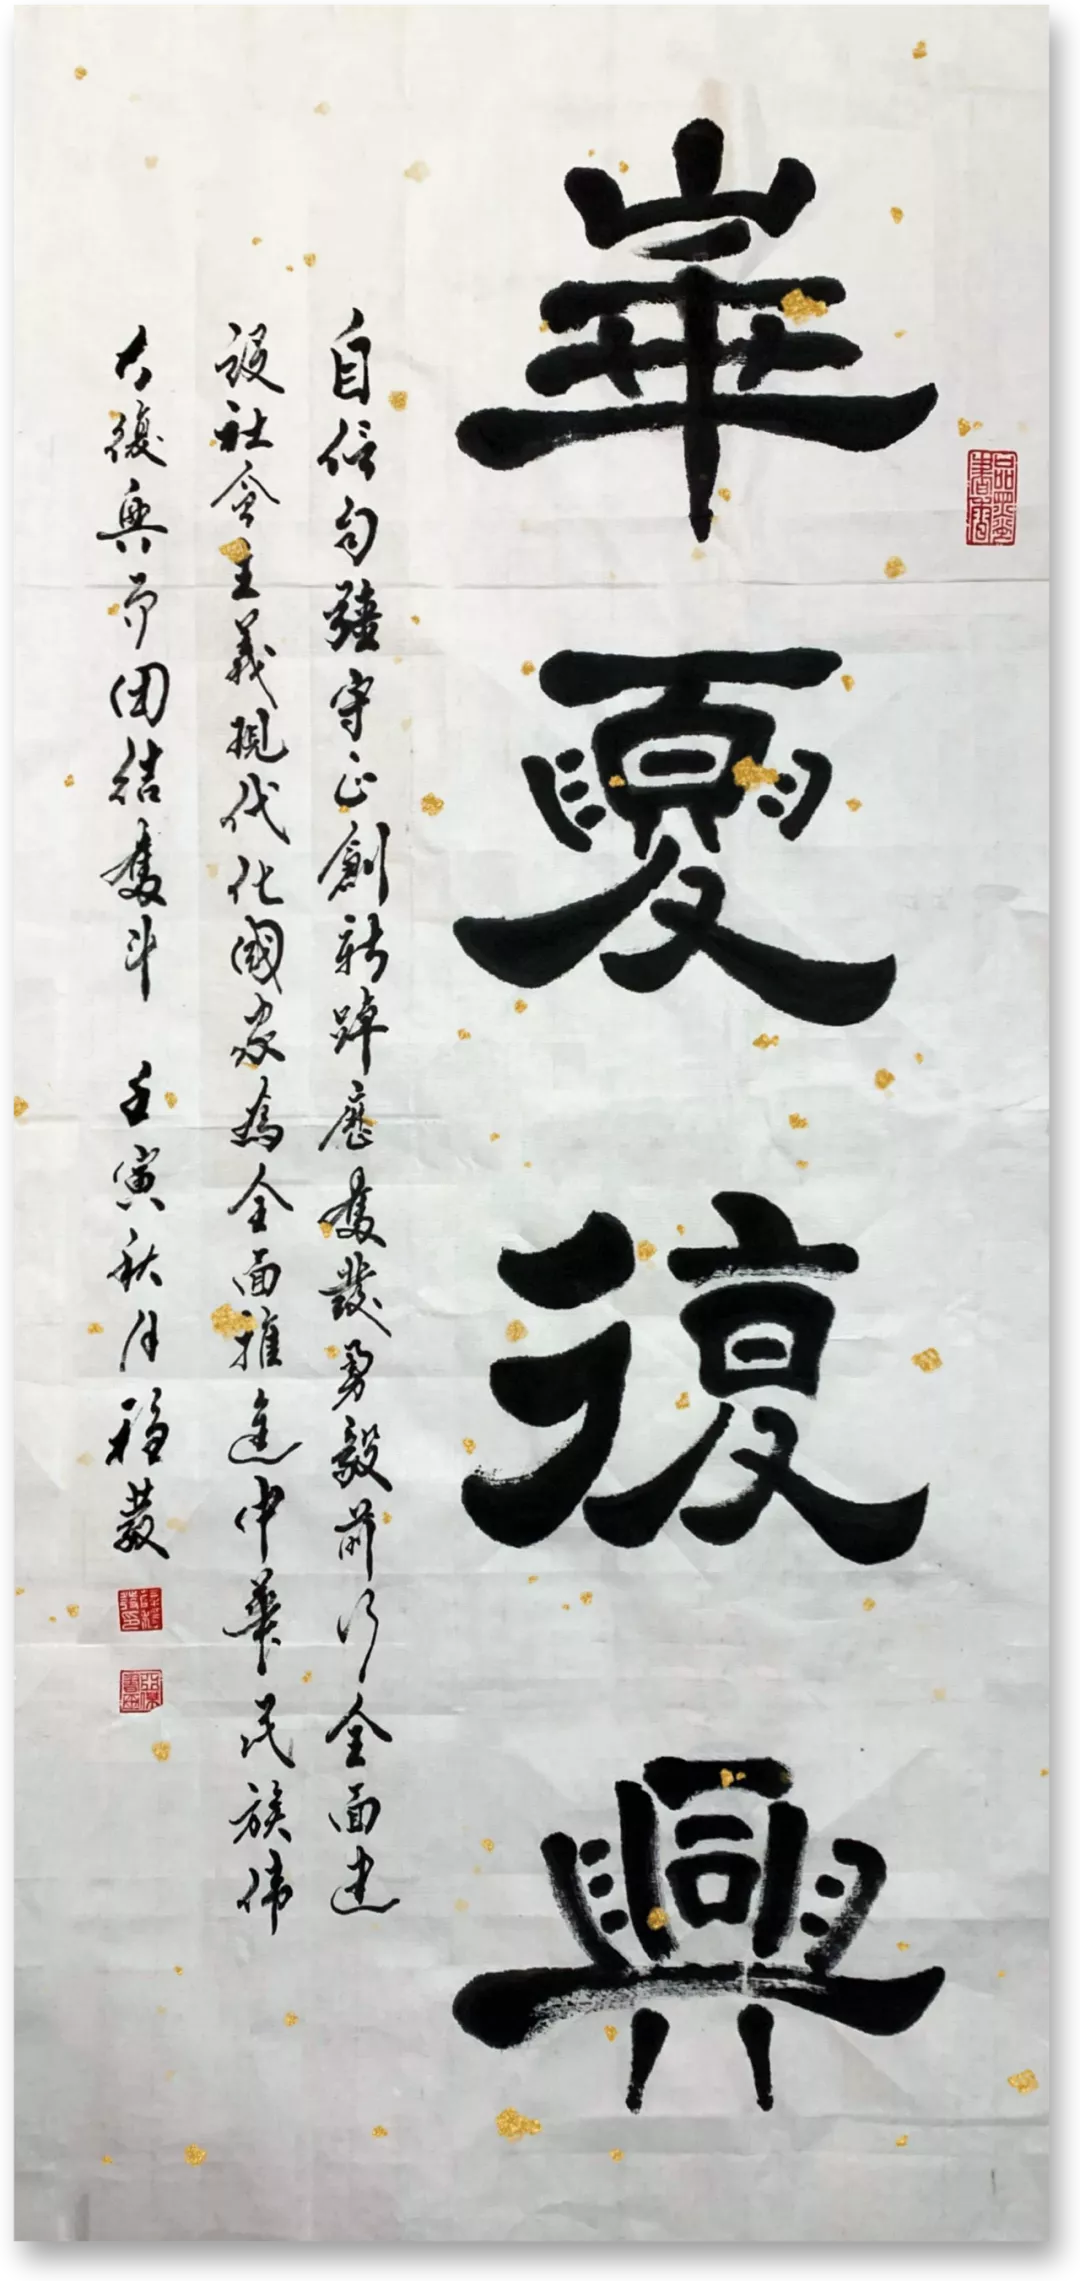 華夏復興
自信自強守正創新踔厲奮發勇毅前行全面建
設社會主義現代化國家為全面推進中華民族伟
大復興而團結奮斗 壬寅秋月